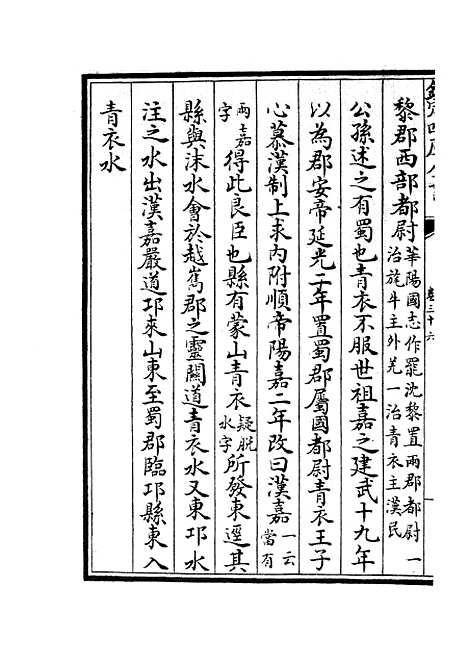 欽定四庫全書
卷三十六
黎郡西部都尉華陽國志作罷沈黎置兩郡都尉一
治旄牛主外羌一治青衣主漢民
公孫述之有蜀也青衣不服世祖嘉之建武十九年
以為郡安帝延光二年置蜀郡屬國都尉青衣王子
心慕漢制上求內附順帝陽嘉二年改曰漢嘉一云
當有
兩嘉
字得此良臣也縣有蒙山青衣疑脱
水字所發東逕其
縣與沫水會於越嶲郡之靈關道青衣水又東邛水
注之水出漢嘉嚴道邛來山東至蜀郡臨邛縣東入
青衣水